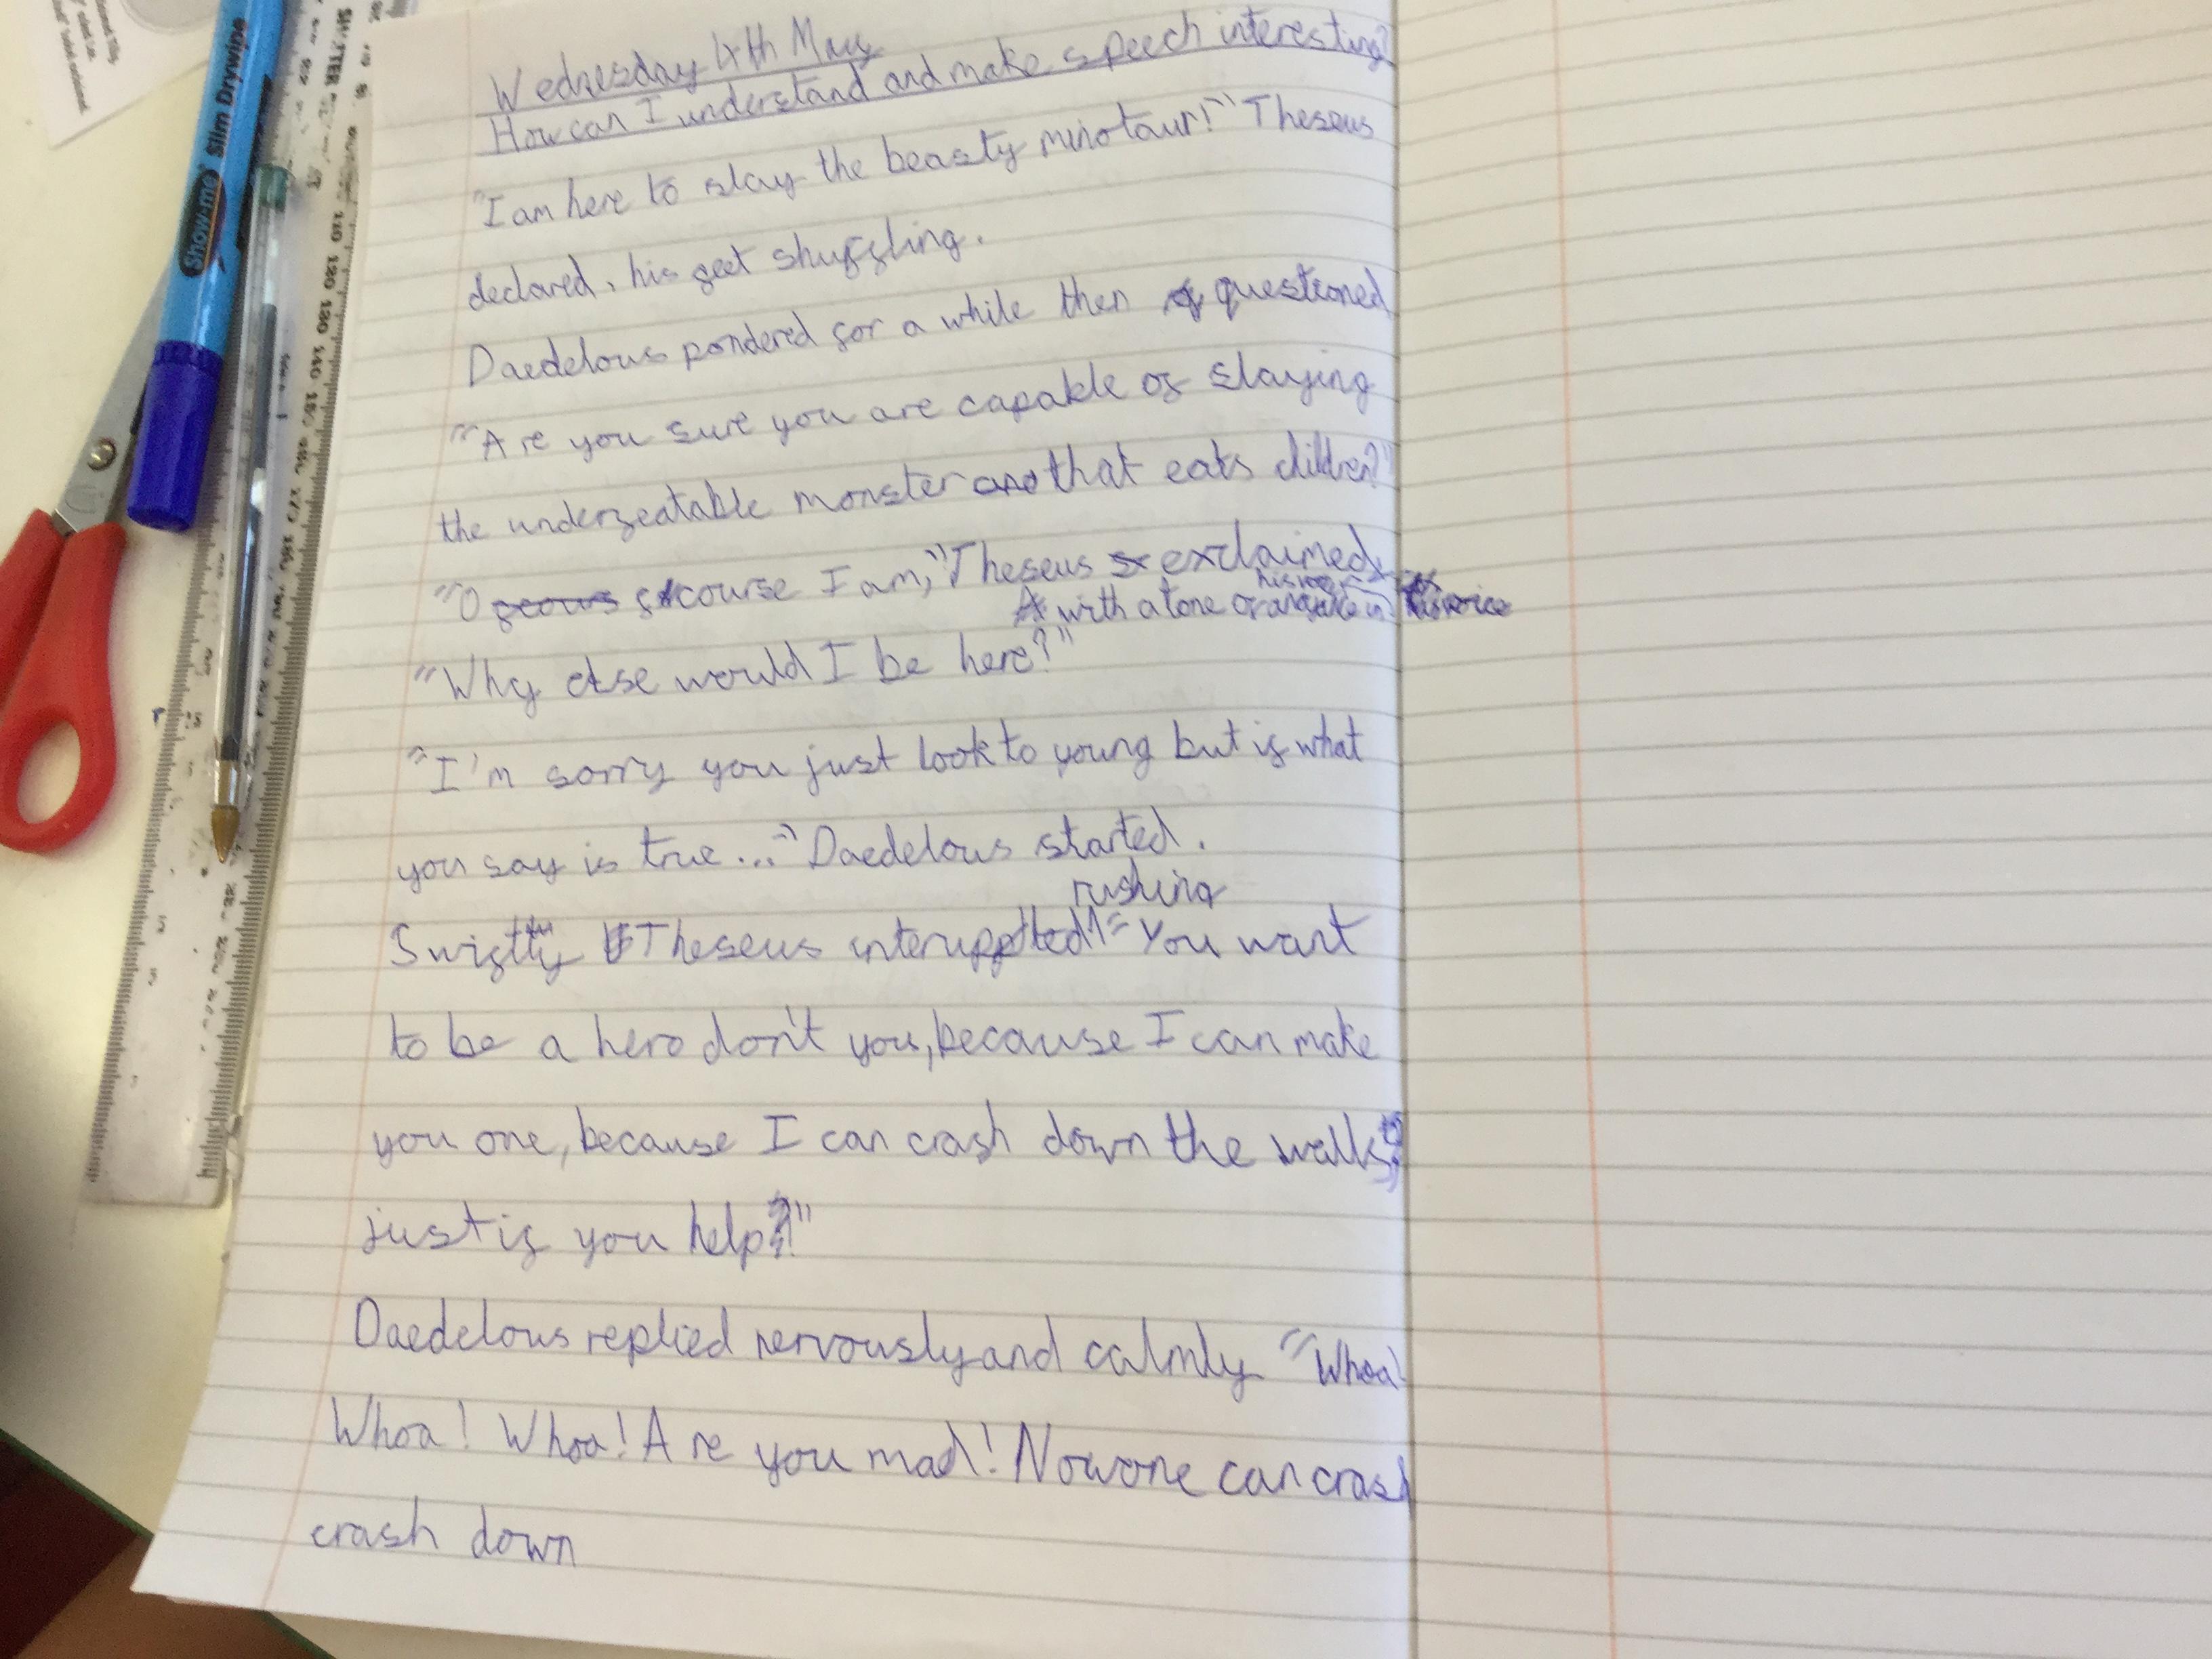 Show-me Slim Drywipe
Wednesday 4th May
How can I understand and make speech interesting?
"I am here to slay the beasty minotaur!" Theseus
declared, his feet shuffling.
Daedelous pondered for a while then questioned
"Are you sure you are capable of slaying
the underfeatable monster that eats children?"
"O f course I am," Theseus exclaimed
with a tone of in voice
"Why else would I be here?"
"I'm sorry you just look to young but if what
you say is true..." Daedelous started.
rushing
Swiftly Theseus interuppted "You want
to be a hero don't you, because I can make
you one, because I can crash down the walls
just if you help!"
Daedelous replied nervously and calmly "Whoa!
Whoa! Whoa! Are you mad! Nowone can crash
crash down